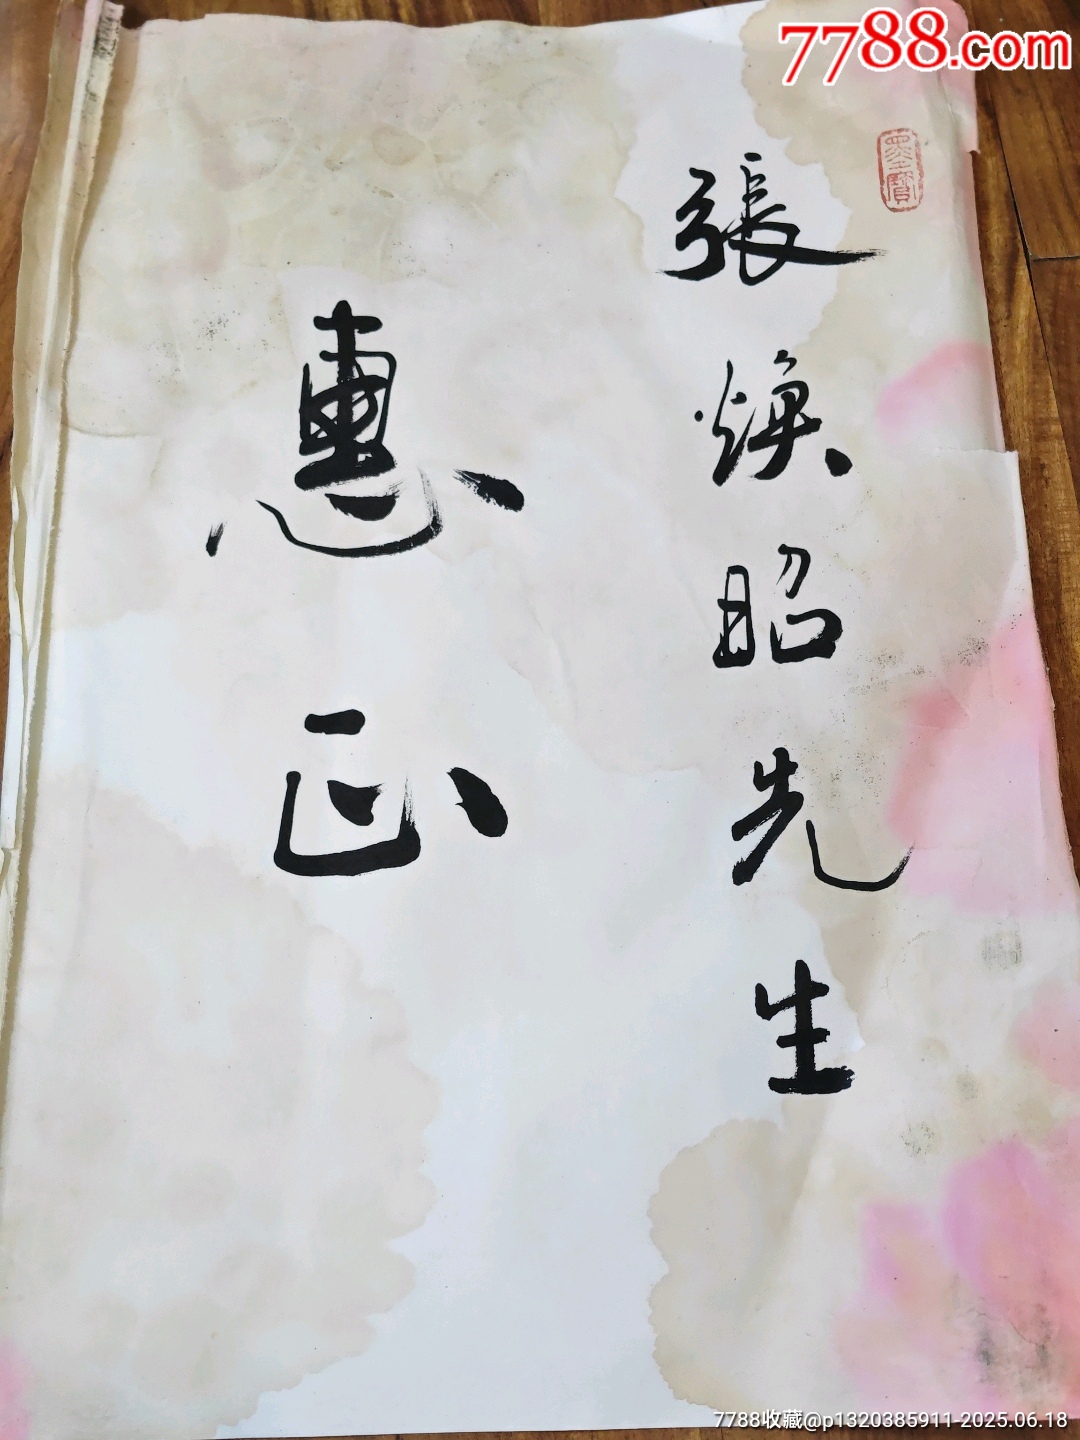 7788.com
墨寶
張焕昭先生
惠正
7788收藏@p1320385911-2025.06.18